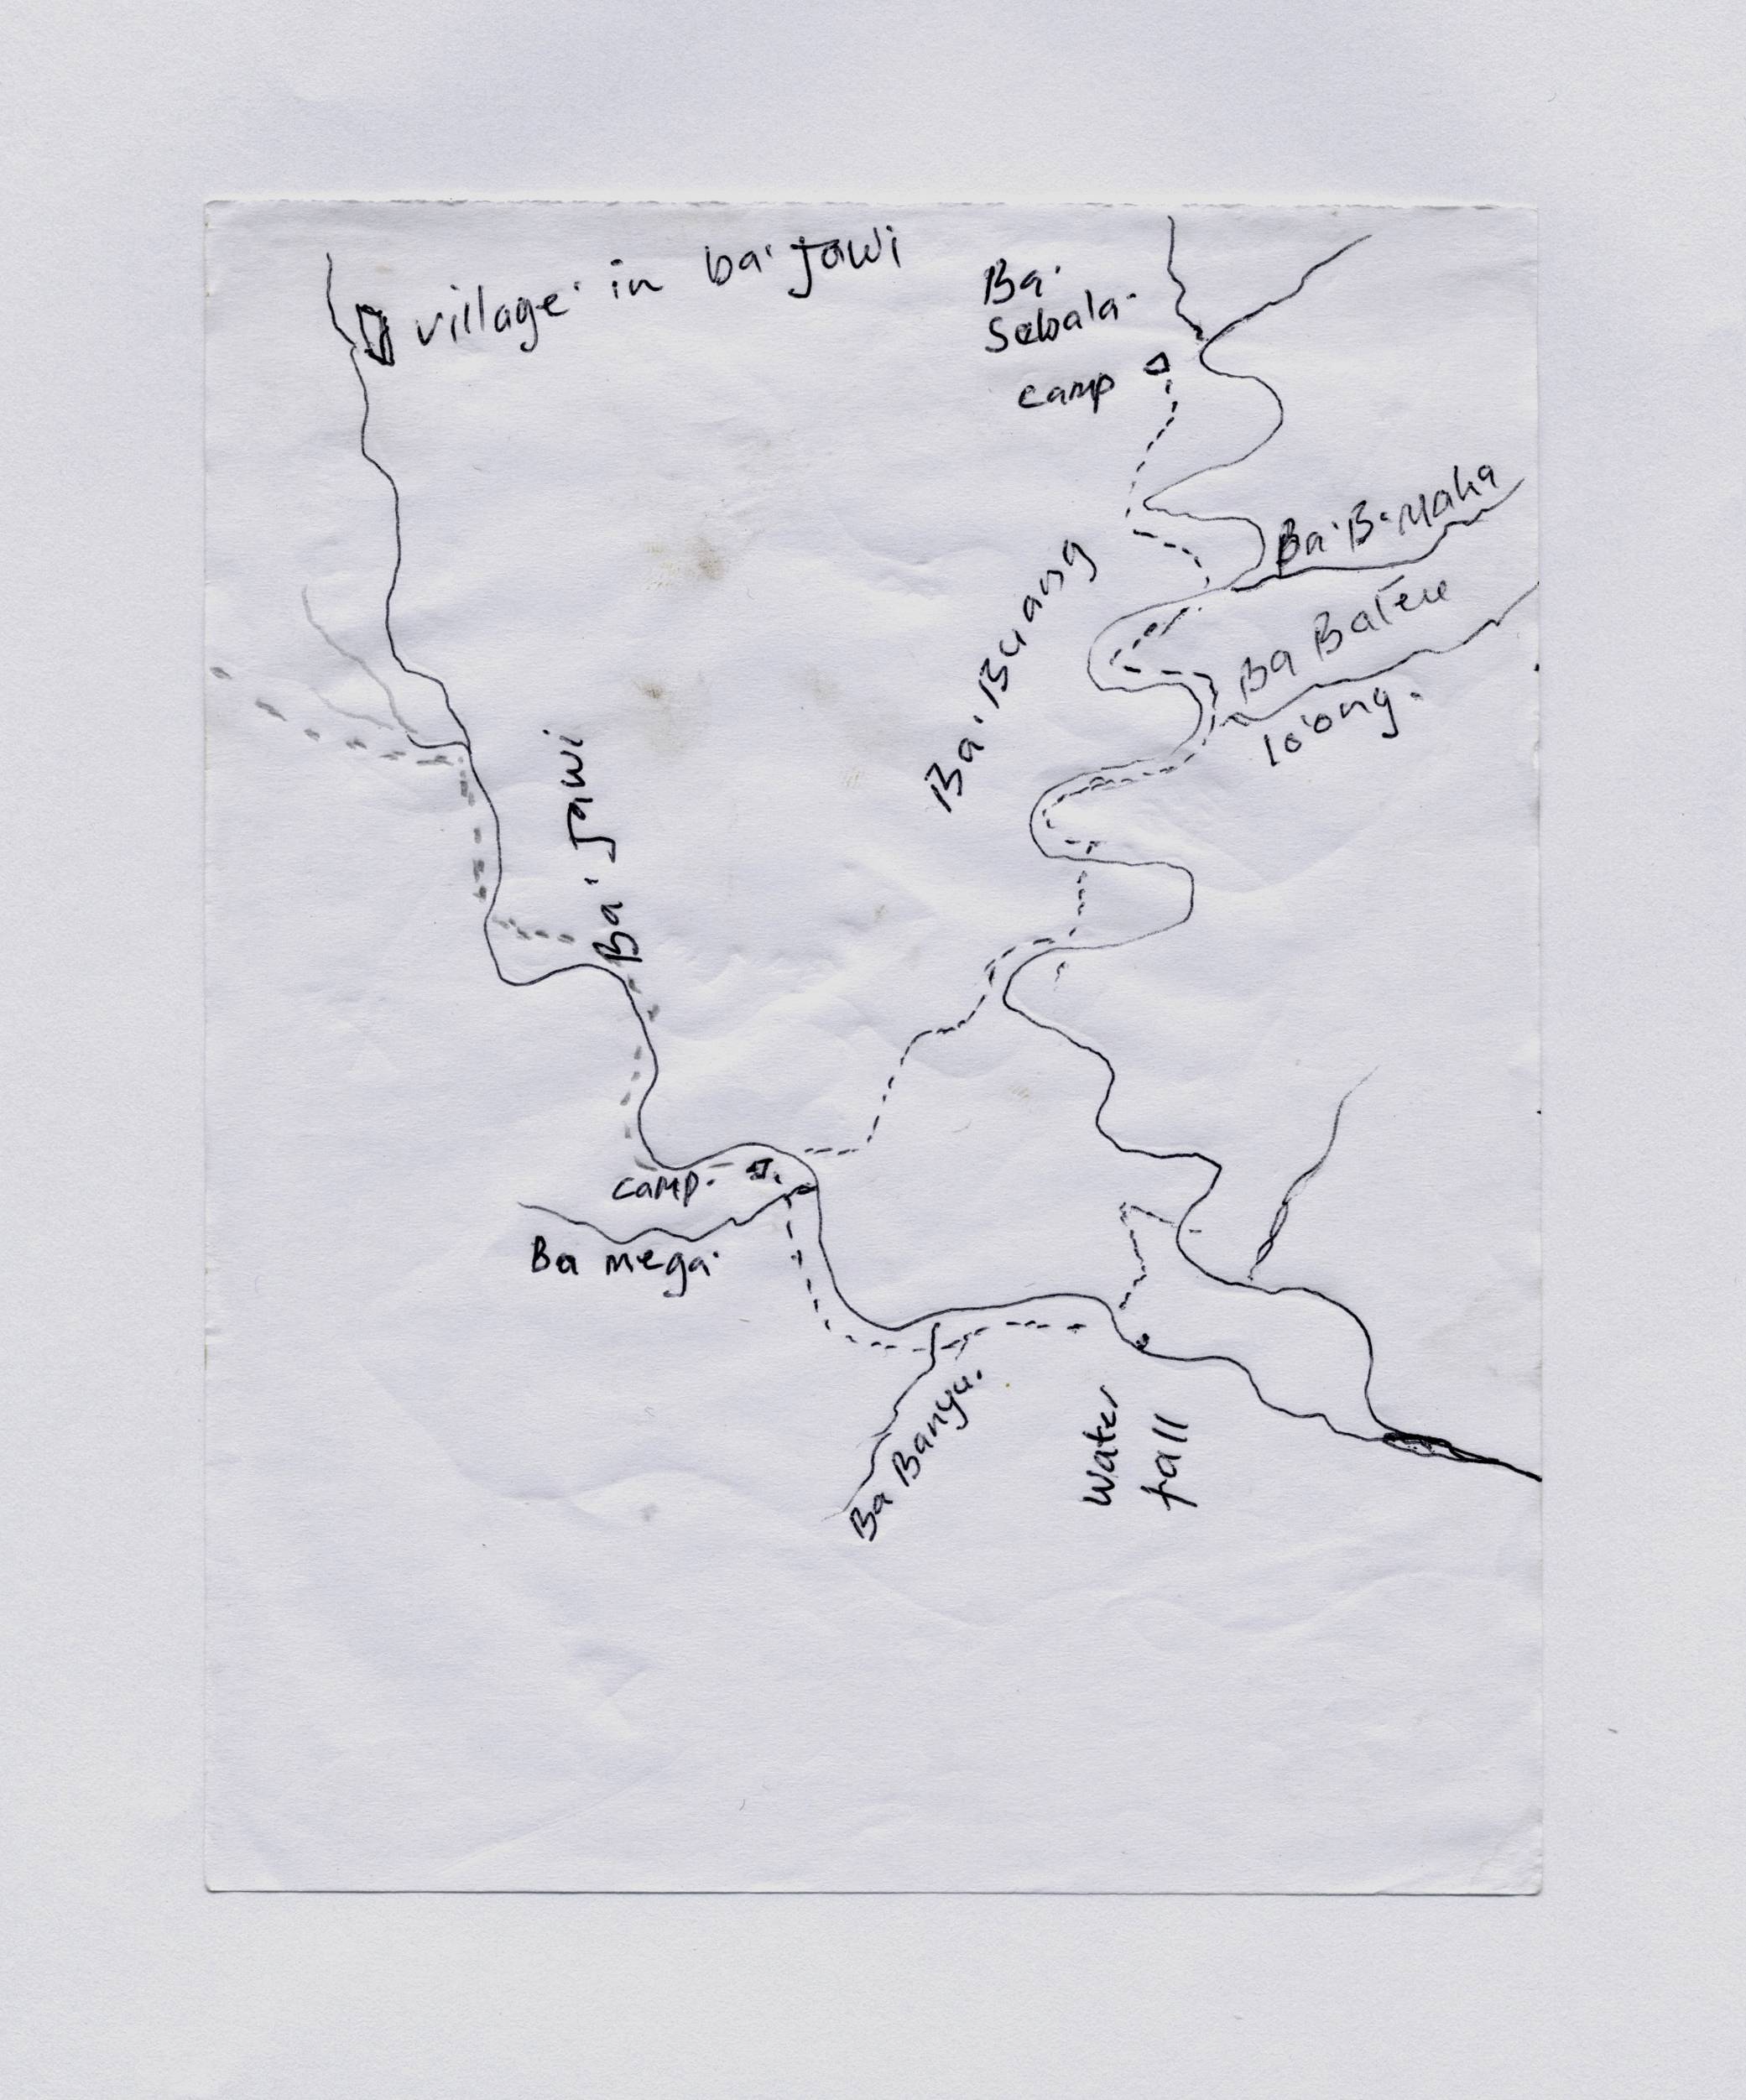 village in ba' Jawi
Ba'
Sebala
camp
Ba' B. Maha
Ba Bateu
lo'ong.
Ba' Buang
Ba' Jawi
camp.
Ba mega
Ba Banyu.
water
fall